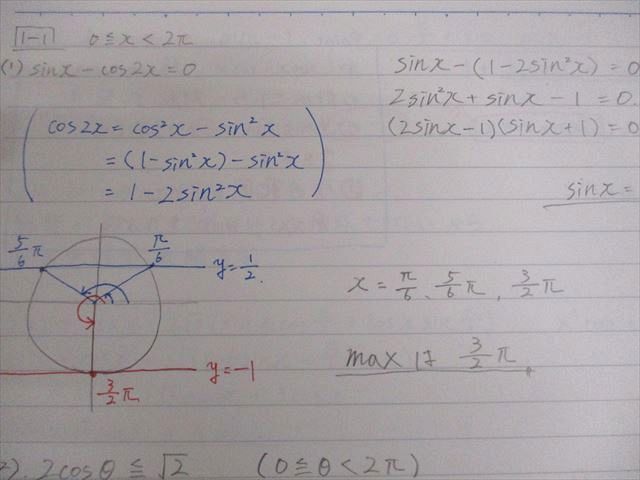 1-1 0≦x<2π
(1) sinx-cos2x=0
cos2x=cos²x-sin²x
=(1-sin²x)-sin²x
=1-2sin²x
sinx-(1-2sin²x)=0
2sin²x+sinx-1=0
(2sinx-1)(sinx+1)=0
sinx=
5/6 π
π/6
y=1/2.
y=-1
3/2 π
x=π/6、5/6 π、3/2 π
maxは 3/2 π
2). 2cosθ≦√2 (0≦θ<2π)